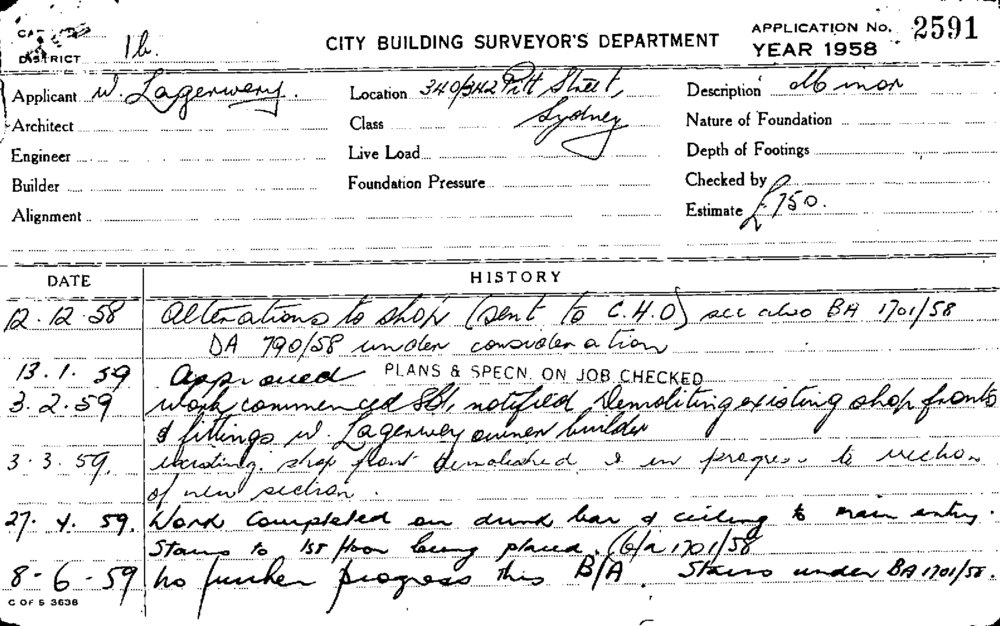 CITY BUILDING SURVEYOR'S DEPARTMENT
APPLICATION No. 2591
YEAR 1958
DISTRICT 1b.
Applicant W. Lagerwey. Location 340/342 Pitt Street, Description Minor
Architect Class Sydney Nature of Foundation
Engineer Live Load Depth of Footings
Builder Foundation Pressure Checked by
Alignment Estimate £750.
DATE HISTORY
12.12.58 Alterations to shop (sent to C.H.O) see also BA 1701/58
DA 790/58 under consideration
13.1.59 Approved PLANS & SPECN. ON JOB CHECKED
3.2.59 Work commenced notified Demoliting existing shop fronts
& fittings W. Lagerwey owner builder
3.3.59. existing shop front demolished & in progress to erection
of new section.
27.4.59. Work completed on drink bar & ceiling to main entry.
Stairs to 1st floor being placed. (b/a 1701/58
8-6-59 No further progress this B/A. Stairs under BA 1701/58.
C OF S 3638